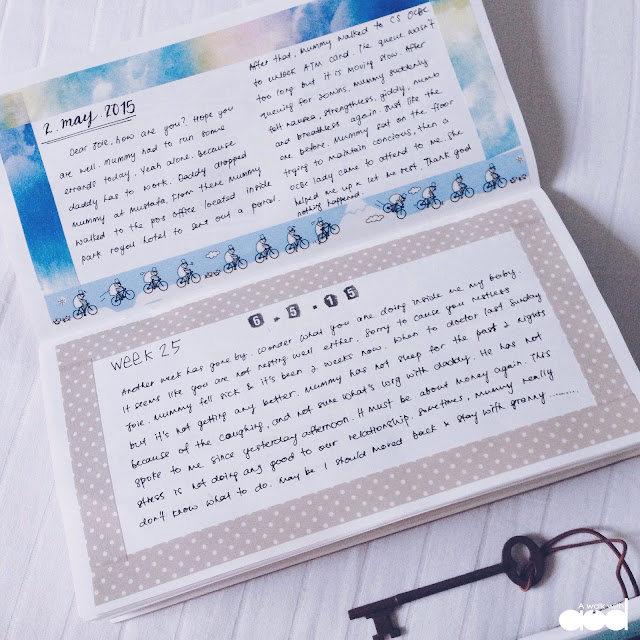 2. may. 2015
Dear Joie, how are you? Hope you
are well. Mummy had to run some
errands today. Yeah alone. Because
daddy has to work. Daddy dropped
mummy at Mustafa, from there mummy
walked to the pos office located inside
park royal hotel to sent out a parcel.
After that, mummy walked to CS OCBC
to unlock ATM card. The queue wasn't
too long but it is moving slow. After
queuing for 20mins, mummy suddenly
felt nausea, strengthless, giddy, numb
and breathless again. Just like the
one before. Mummy sat on the floor
trying to maintain concious, then a
OCBC lady came to attend to me. She
helped me up & let me rest. Thank god
nothing happened
6 - 5 - 15
WEEK 25
Another week has gone by. Wonder what you are doing inside me my baby.
It seems like you are not resting well either. Sorry to cause you restless
Joie. Mummy fell sick & it's been 2 weeks now. When to doctor last Sunday
but it's not getting any better. Mummy has not sleep for the past 2 nights
because of the coughing, and not sure what's worg with daddy. He has not
spoke to me since yesterday afternoon. It must be about money again. This
stress is not doing any good to our relationship. Sometimes, mummy really
don't know what to do. May be I should moved back & stay with granny .........
A walk with
aud